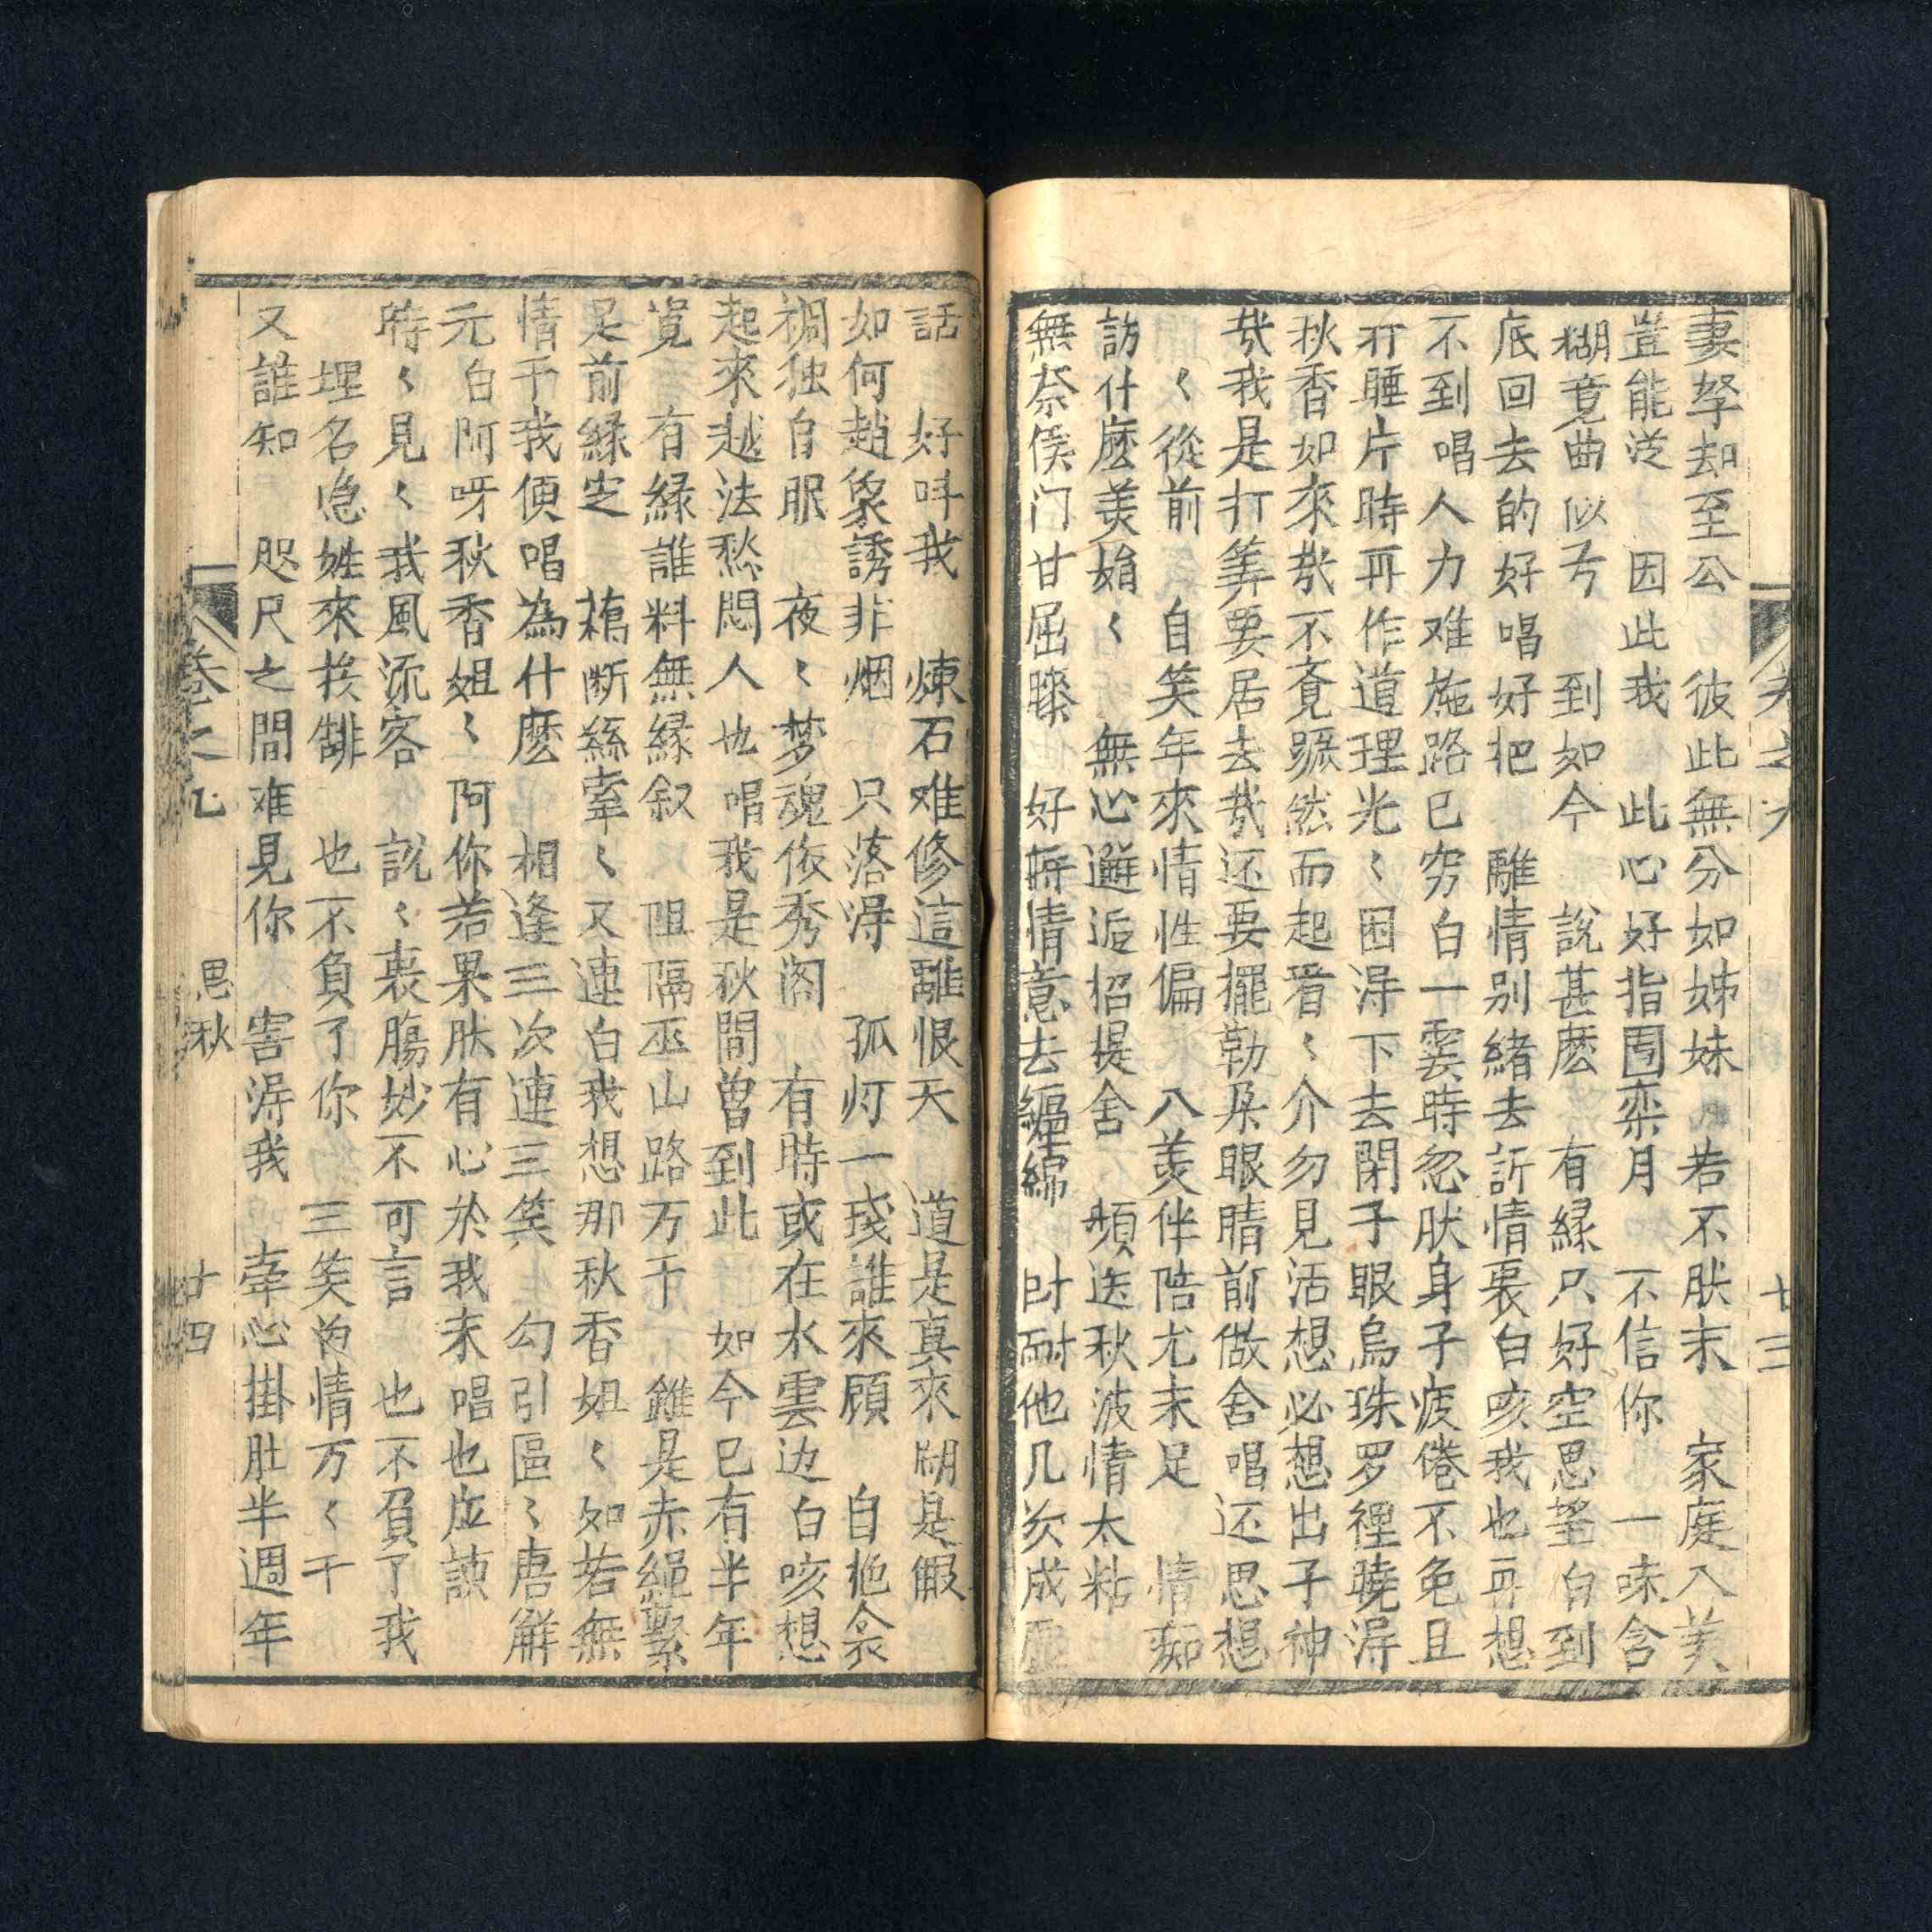 妻孥却至公 彼此無分如姊妹 若不肰末 家庭八美
豈能泛 因此我 此心好指团栾月 不信你 一味含
糊竟曲似弓 到如今 說甚麽 有緣只好空思望白到
底回去的好唱好把 離情别緒去訴情裏白咳我也再想
不到唱人力难施路已穷白一霎時忽肰身子疲倦不免且
打睡片時再作道理光〻困淂下去閉子眼烏珠罗裡曉淂
秋香如來哉不竟蹶然而起唔〻介勿見活想必想出子神
哉我是打筭要居去哉还要擺勒杲眼睛前做舍唱还思想
〻從前 自笑年來情性偏 八美伴陪尤末足 情痴
訪什麽美娟〻 無心邂逅招提舍 頻送秋波情太粘
無奈侯门甘屈膝 好將情意去纏綿 时耐他几次成虛
話 好呌我 煉石难修這離恨天 道是真來烟是假
如何趙象誘非烟 只落淂 孤灯一琖誰來顾 自抱衾
裯独自眠 夜〻梦魂依秀阁 有時或在水雲边白咳想
起來越法愁悶人也唱我是秋間曾到此 如今已有半年
寛 有緣誰料無緣叙 阻隔巫山路万千 雖是赤繩繫
足前緣定 藕断絲牽〻又連白我想那秋香姐〻如若無
情于我便唱為什麽 相逢三次連三笑 勾引區〻唐解
元白阿呀秋香姐〻阿你若果肰有心於我末唱也应諒
時〻見〻我風流客 說〻衷腸妙不可言 也不負了我
埋名隐姓來挨舗 也不負了你 三笑留情万〻千
又誰知 咫尺之間难見你 害淂我 牽心掛肚半週年
卷之九 思秋 廿四